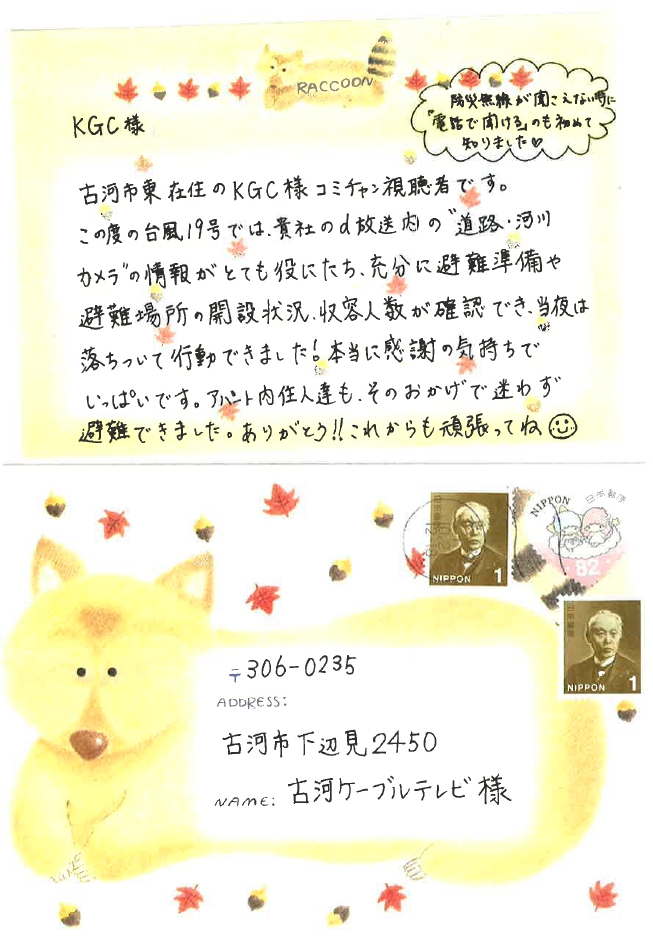 RACCOON
KGC様
防災無線が聞こえない時に
「電話で聞ける」のも初めて
知りました♡
古河市東在住のKGC様コミチャン視聴者です。
この度の台風19号では、貴社のd放送内の"道路・河川
カメラ"の情報がとても役にたち、充分に避難準備や
避難場所の開設状況、収容人数が確認でき、当夜は
落ちついて行動できました!本当に感謝の気持ちで
いっぱいです。アパート内住人達も、そのおかげで迷わず
避難できました。ありがとう!!これからも頑張ってね☺
NIPPON
日本郵便
82
NIPPON 1
日本郵便
NIPPON 1
〒306-0235
ADDRESS:
古河市下辺見2450
NAME: 古河ケーブルテレビ様